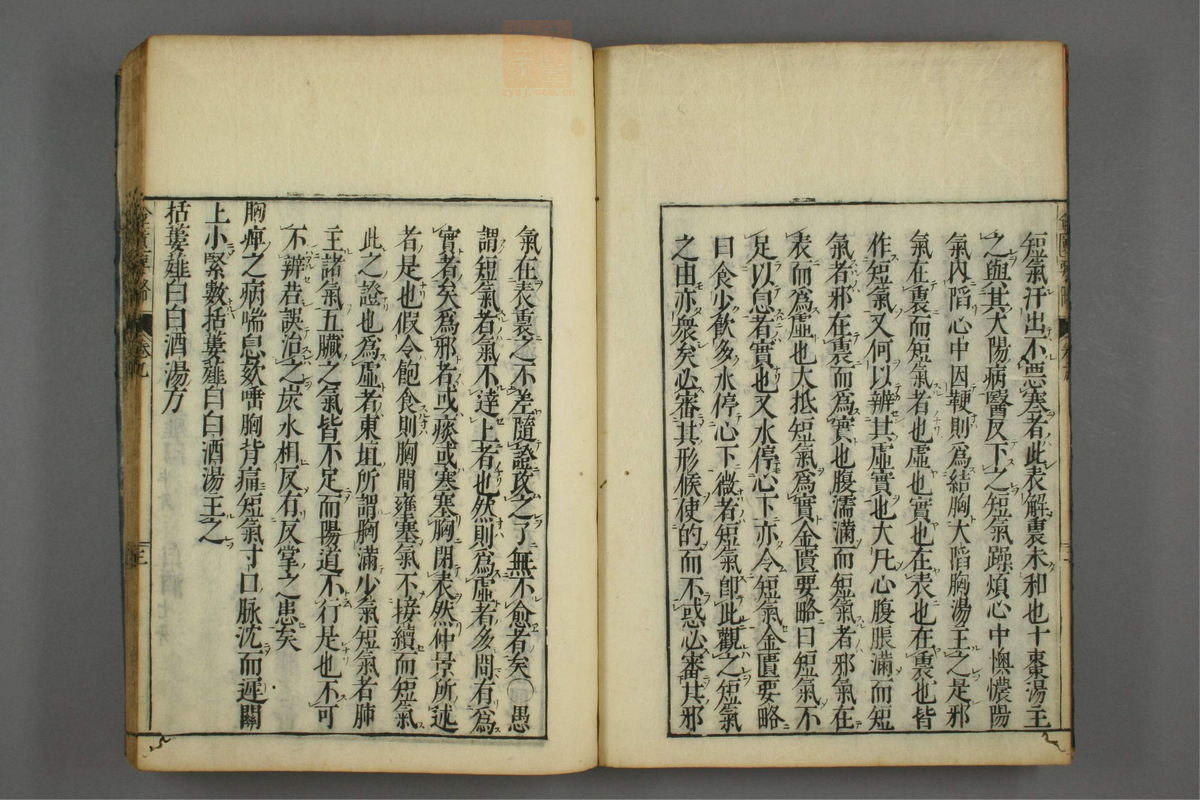 短氣汗出不惡寒者此表解裏未和也十棗湯主
之與其大陽病醫反下之短氣躁煩心中懊憹陽
氣內陷心中因鞕則爲結胸大陷胸湯王之是邪
氣在裏而短氣者也虛也實也在表也在裏也皆
作短氣又何以辨其虛實也大凡心腹脹滿而短
氣者邪在裏而爲實也腹濡滿而短氣者邪氣在
表而爲虛也大抵短氣爲實金匱要略曰短氣不
足以息者實也又水停心下亦令短氣金匱要略
曰食少飲多水停心下微者短氣卽此觀之短氣
之由亦衆矣必審其形候使的而不惑必審其邪
氣在表裏之不差隨證攻之了無不愈者矣 愚
謂短氣者氣不達上者也然則爲虛者多間有爲
實者矣爲邪者或痰或寒塞胸閉表然仲景所述
者是也假令飽食則胸間壅塞氣不接續而短氣
此之證也爲虛者東垣所謂胸滿少氣短氣者肺
主諸氣五臟之氣皆不足而陽道不行是也不可
不辨若誤治之炭氷相反有反掌之患矣
胸痺之病喘息欬唾胸背痛短氣寸口脉沈而遲關
上小緊數括蔞薤白白酒湯王之
括蔞薤白白酒湯方
卷九
三